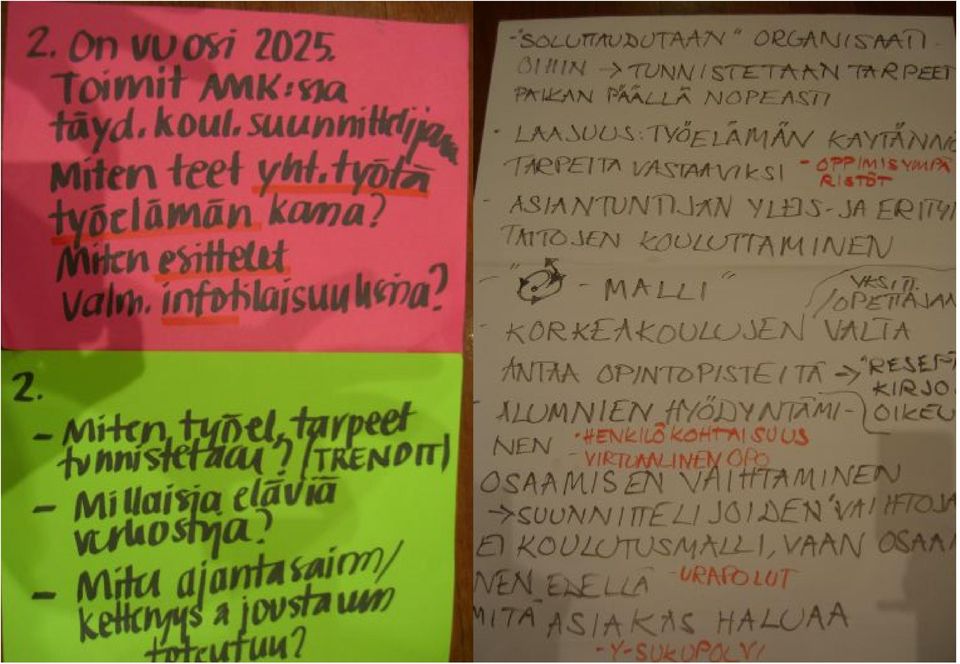 2. On vuosi 2025.
Toimit AMK:ssa
täyd. koul. suunnittelijana
Miten teet yht.työtä
työelämän kanssa?
Miten esittelet
valm. infotilaisuuksissa?
2.
- Miten työel. tarpeet
tunnistetaan? (TRENDIT)
- Millaisia eläviä
verkostoja?
- Miten
ketteryys & joustavuus
toteutuu?
-"SOLUTTAUDUTAAN" ORGANISAATI-
OIHIN → TUNNISTETAAN TARPEET
PAIKAN PÄÄLLÄ NOPEASTI
- LAAJUUS: TYÖELÄMÄN KÄYTÄNNÖ
TARPEITA VASTAAVIKSI - OPPIMISYMPÄ
RISTÖT
- ASIANTUNTIJAN YLEIS- JA ERITYI
TAITOJEN KOULUTTAMINEN
- " - MALLI"
YKSITT.
/OPETTAJAN
- KORKEAKOULUJEN VALTA
ANTAA OPINTOPISTEITÄ → "RESEP
KIRJO
OIKEU
- ALUMNIEN HYÖDYNTÄMI-
NEN - HENKILÖKOHTAISUUS
- VIRTUAALINEN OPO
OSAAMISEN VAIHTAMINEN
→ SUUNNITTELIJOIDEN "VAIHTOJA
EI KOULUTUSMALLI, VAAN OSAA
NEN EDELLÄ - URAPOLUT
MITÄ ASIAKAS HALUAA
- Y-SUKUPOLVI